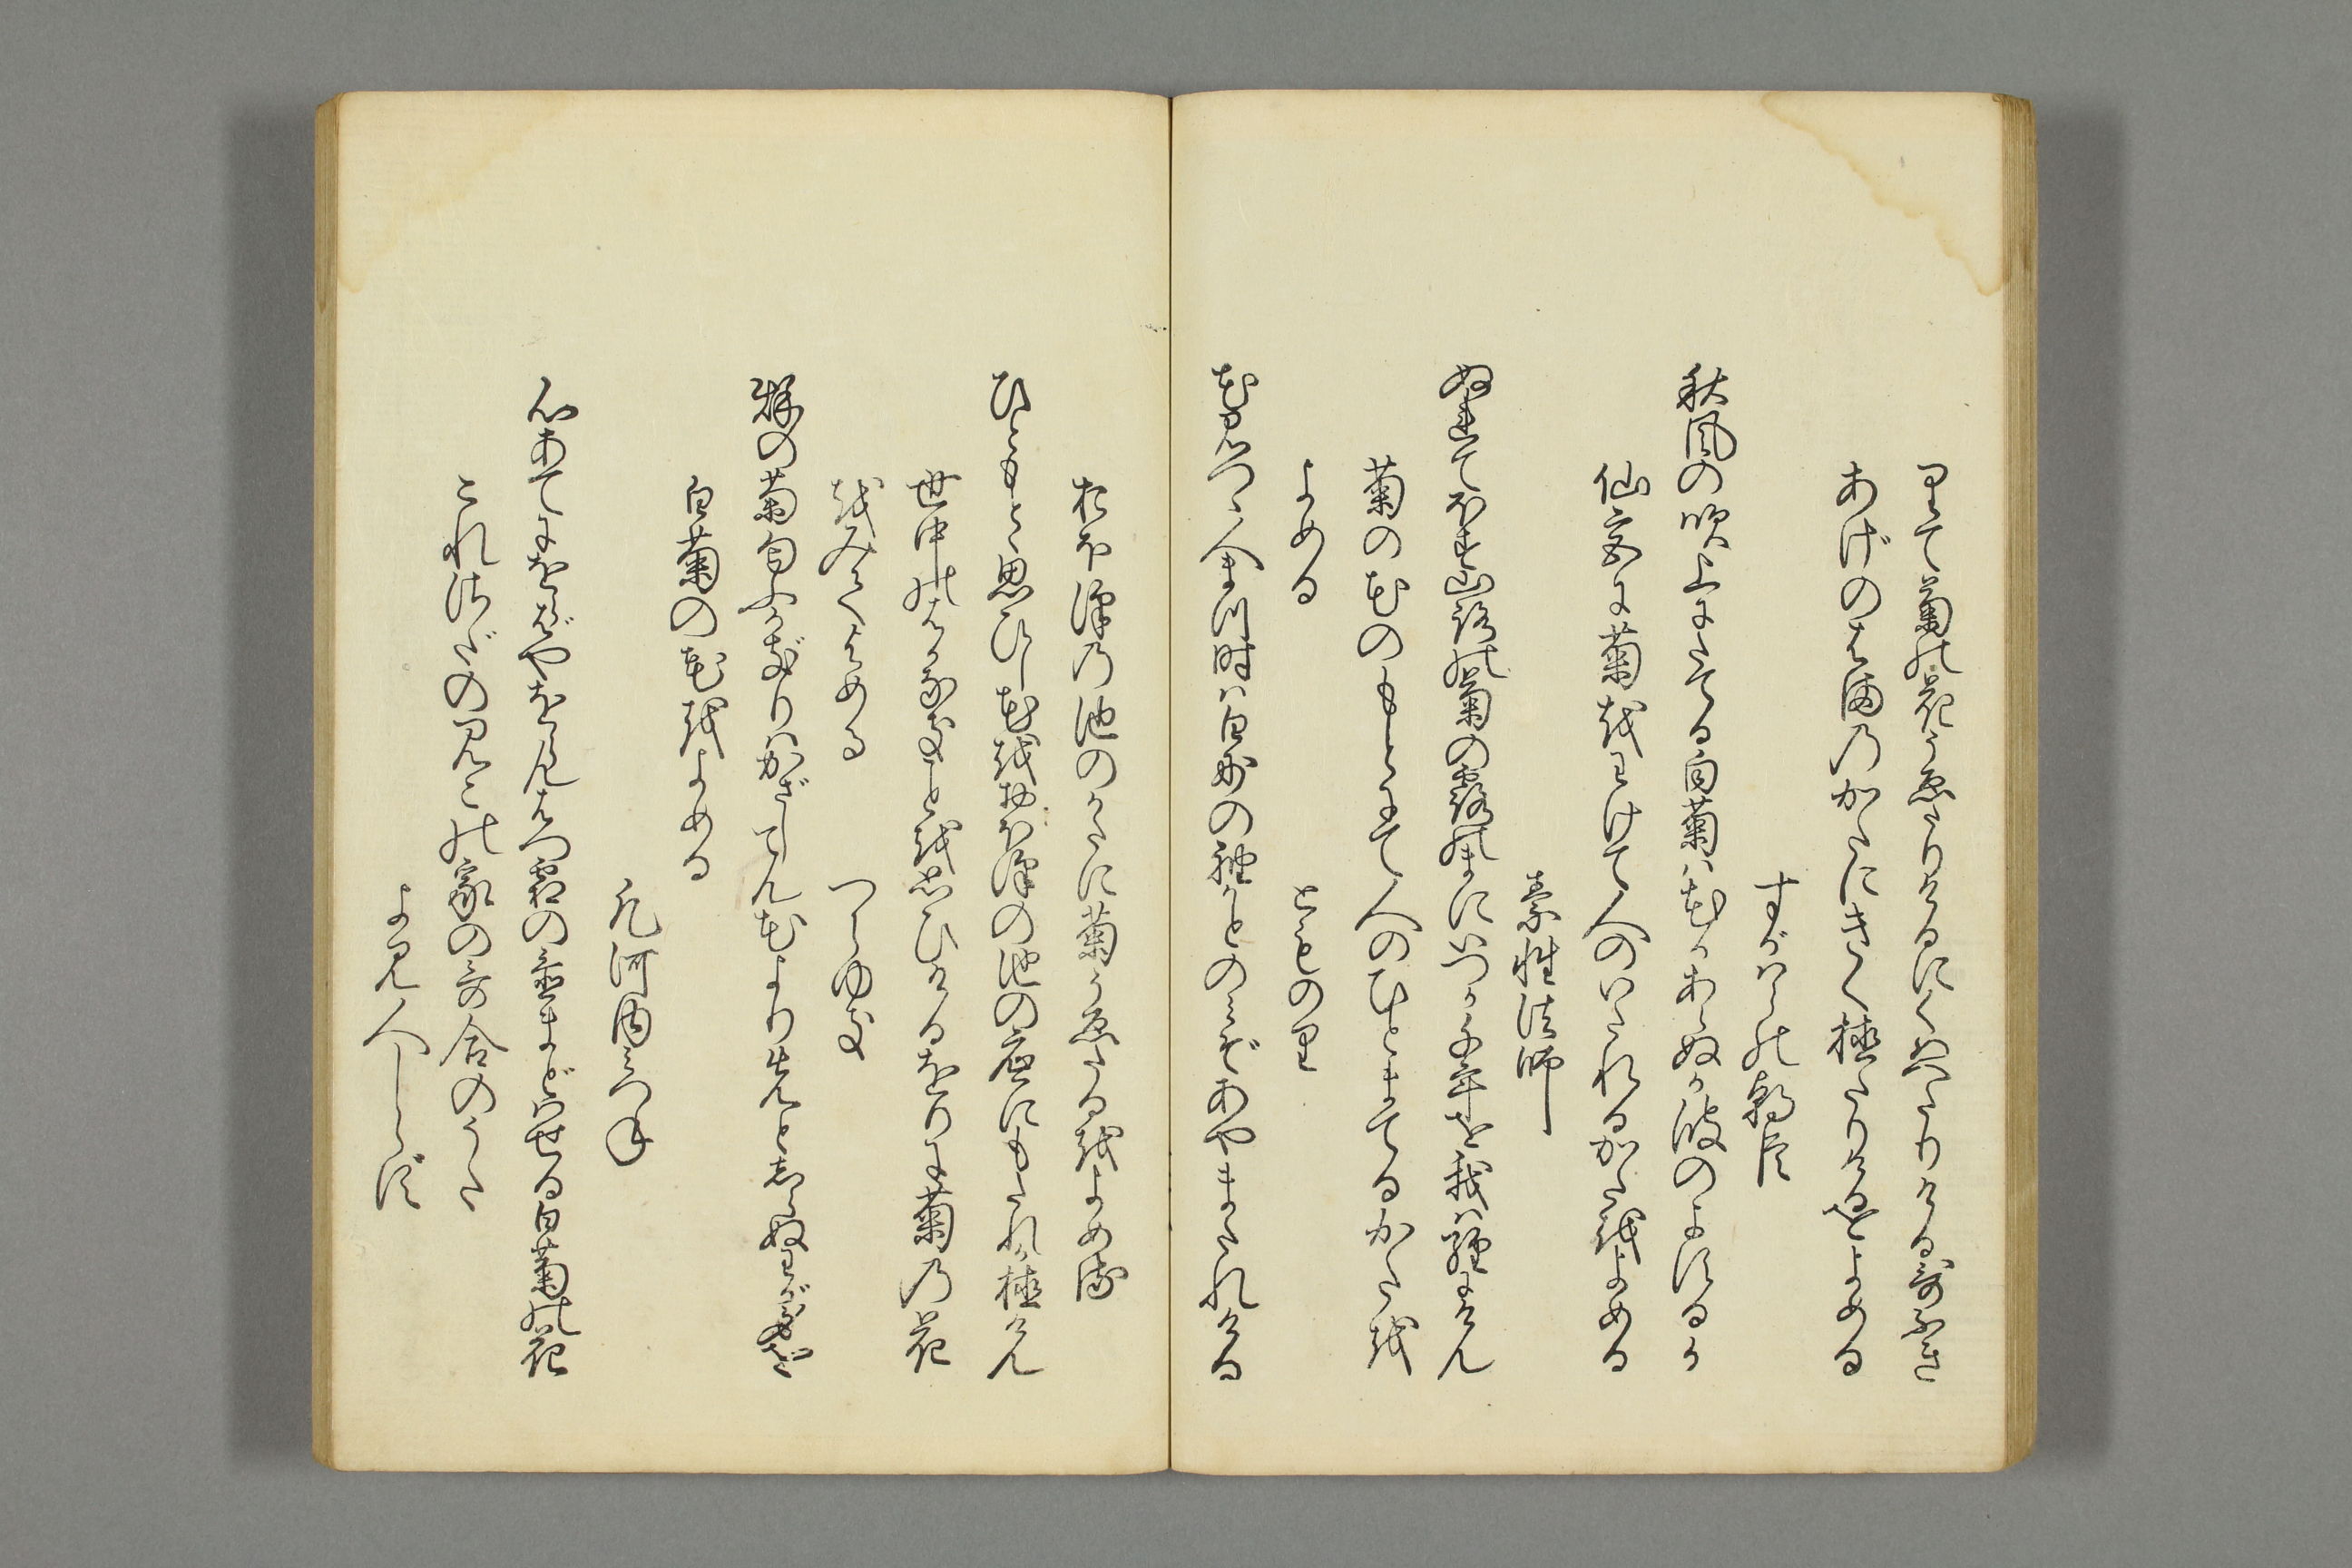 りて菊の花うゑたりけるにくはへたりける哥ふき
あげのはまのかたにきくうゑたりけるをよめる
すがはらの朝臣
秋風の吹上にたてる白菊は花かあらぬか波のよするか
仙宮に菊をわけて人のいたれるかたをよめる
素性法師
ぬれてほす山路の菊の露のまにいつか千年を我は経にけん
菊の花のもとにて人のひとまてるかたを
よめる
とものり
花みつゝ人まつ時は白妙の袖かとのみぞあやまたれける
おほ澤の池のかたに菊うゑたるをよめる
ひともとゝ思ひし花をおほ澤の池の底にもたれか植けん
世中のはかなきことを思ひけるをりに菊の花
をみてよめる　つらゆき
秋の菊匂ふかぎりはかざしてん花より先としらぬわが身ぞ
白菊の花をよめる
凡河内みつね
心あてにをらばやをらんはつ霜の置まどはせる白菊の花
これさだのみこの家の哥合のうた
よみ人しらず